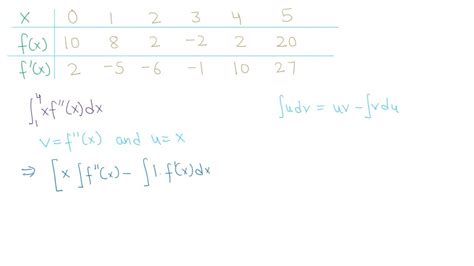 x 0 1 2 3 4 5
f(x) 10 8 2 -2 2 20
f'(x) 2 -5 -6 -1 10 27
∫₁⁴ x f''(x) dx ∫u dv = uv - ∫v du
v = f''(x) and u = x
⇒ [x ∫f''(x) - ∫1. f'(x) dx